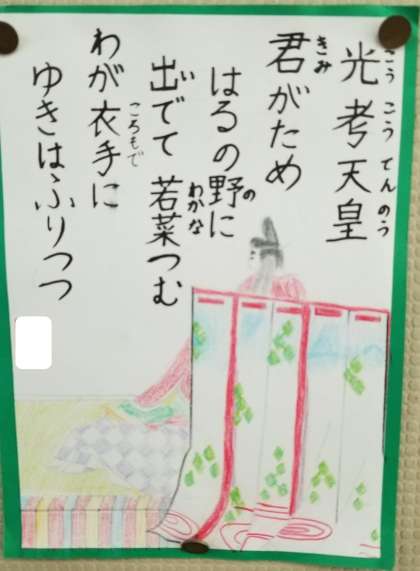 光考天皇
こうこうてんのう
君がため
きみ
はるの野に
の
出でて若菜つむ
いわかな
わが衣手に
ころもで
ゆきはふりつつ